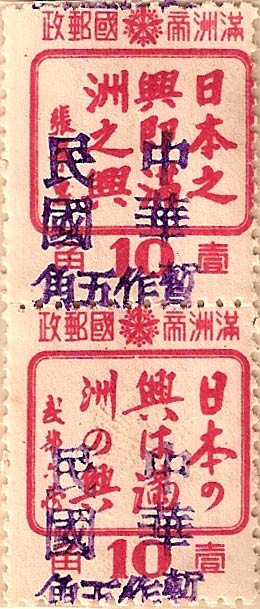 滿洲帝國郵政
日本之
興即滿
洲之興
張景惠
中華
民國
壹 10 角
暫作五角
滿洲帝國郵政
日本の
興は滿
洲の興
武部六藏
中華
民國
壹 10 角
暫作五角